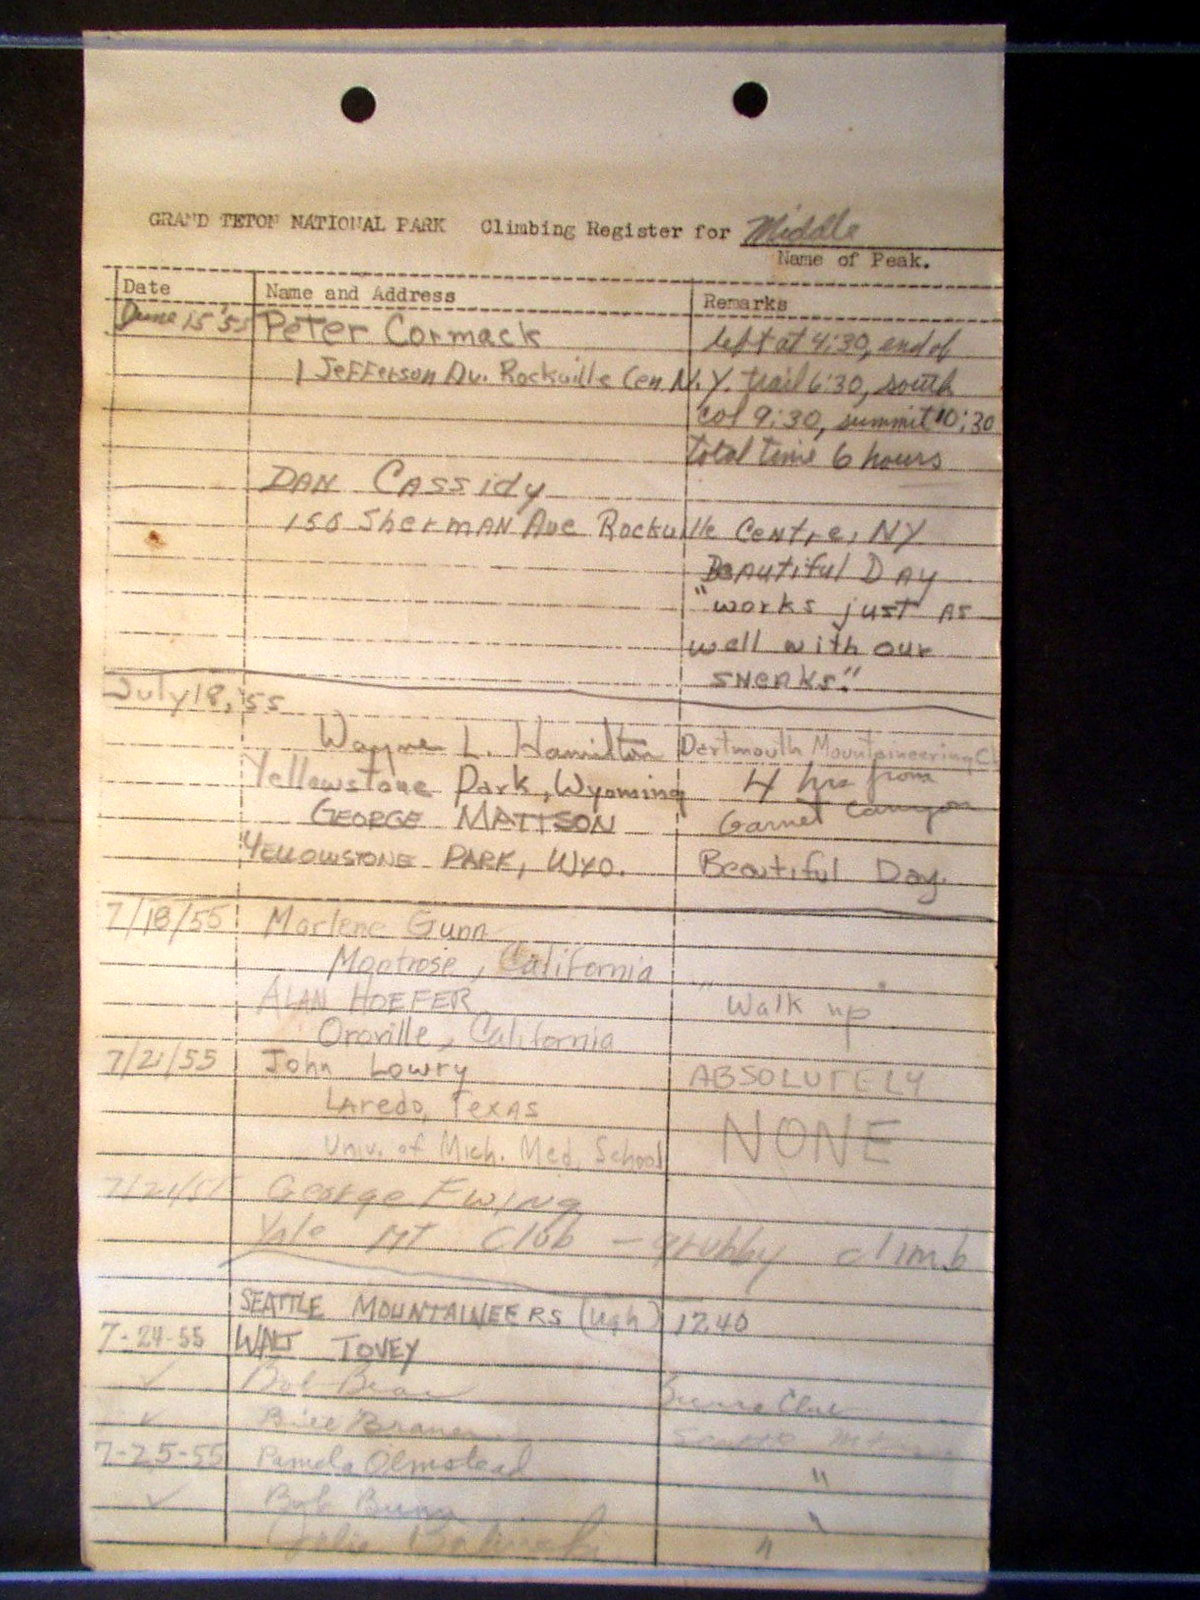 GRAND TETON NATIONAL PARK Climbing Register for Middle
Name of Peak.
Date Name and Address Remarks
June 15 '55 Peter Cormack left at 4:30, end of
1 Jefferson Av. Rockville Cen N.Y. trail 6:30, south
col 9:30, summit 10:30
total time 6 hours
DAN CASSidy
Sherman Ave Rockville Centre, NY
Beautiful Day
"works just as
well with our
sneaks."
July 18, '55
Wayne L. Hamilton Dartmouth Mountaineering Cl
Yellowstone Park, Wyoming 4 hrs from
GEORGE MATTSON Garnet Canyon
YELLOWSTONE PARK, WYO. Beautiful Day.
7/18/55 Marlene Gunn
Montrose, California
ALAN HOEFER "Walk up"
Oroville, California
7/21/55 John Lowry ABSOLUTELY
Laredo, Texas NONE
Univ. of Mich. Med. School
George Ewing
Yale MT Club - grubby climb
SEATTLE MOUNTAINEERS (ugh) 1240
7-24-55 WALT TOVEY
✓ Bob
✓ Bill
7-25-55 Pamela Olmstead "
✓ Bob "
Julie "